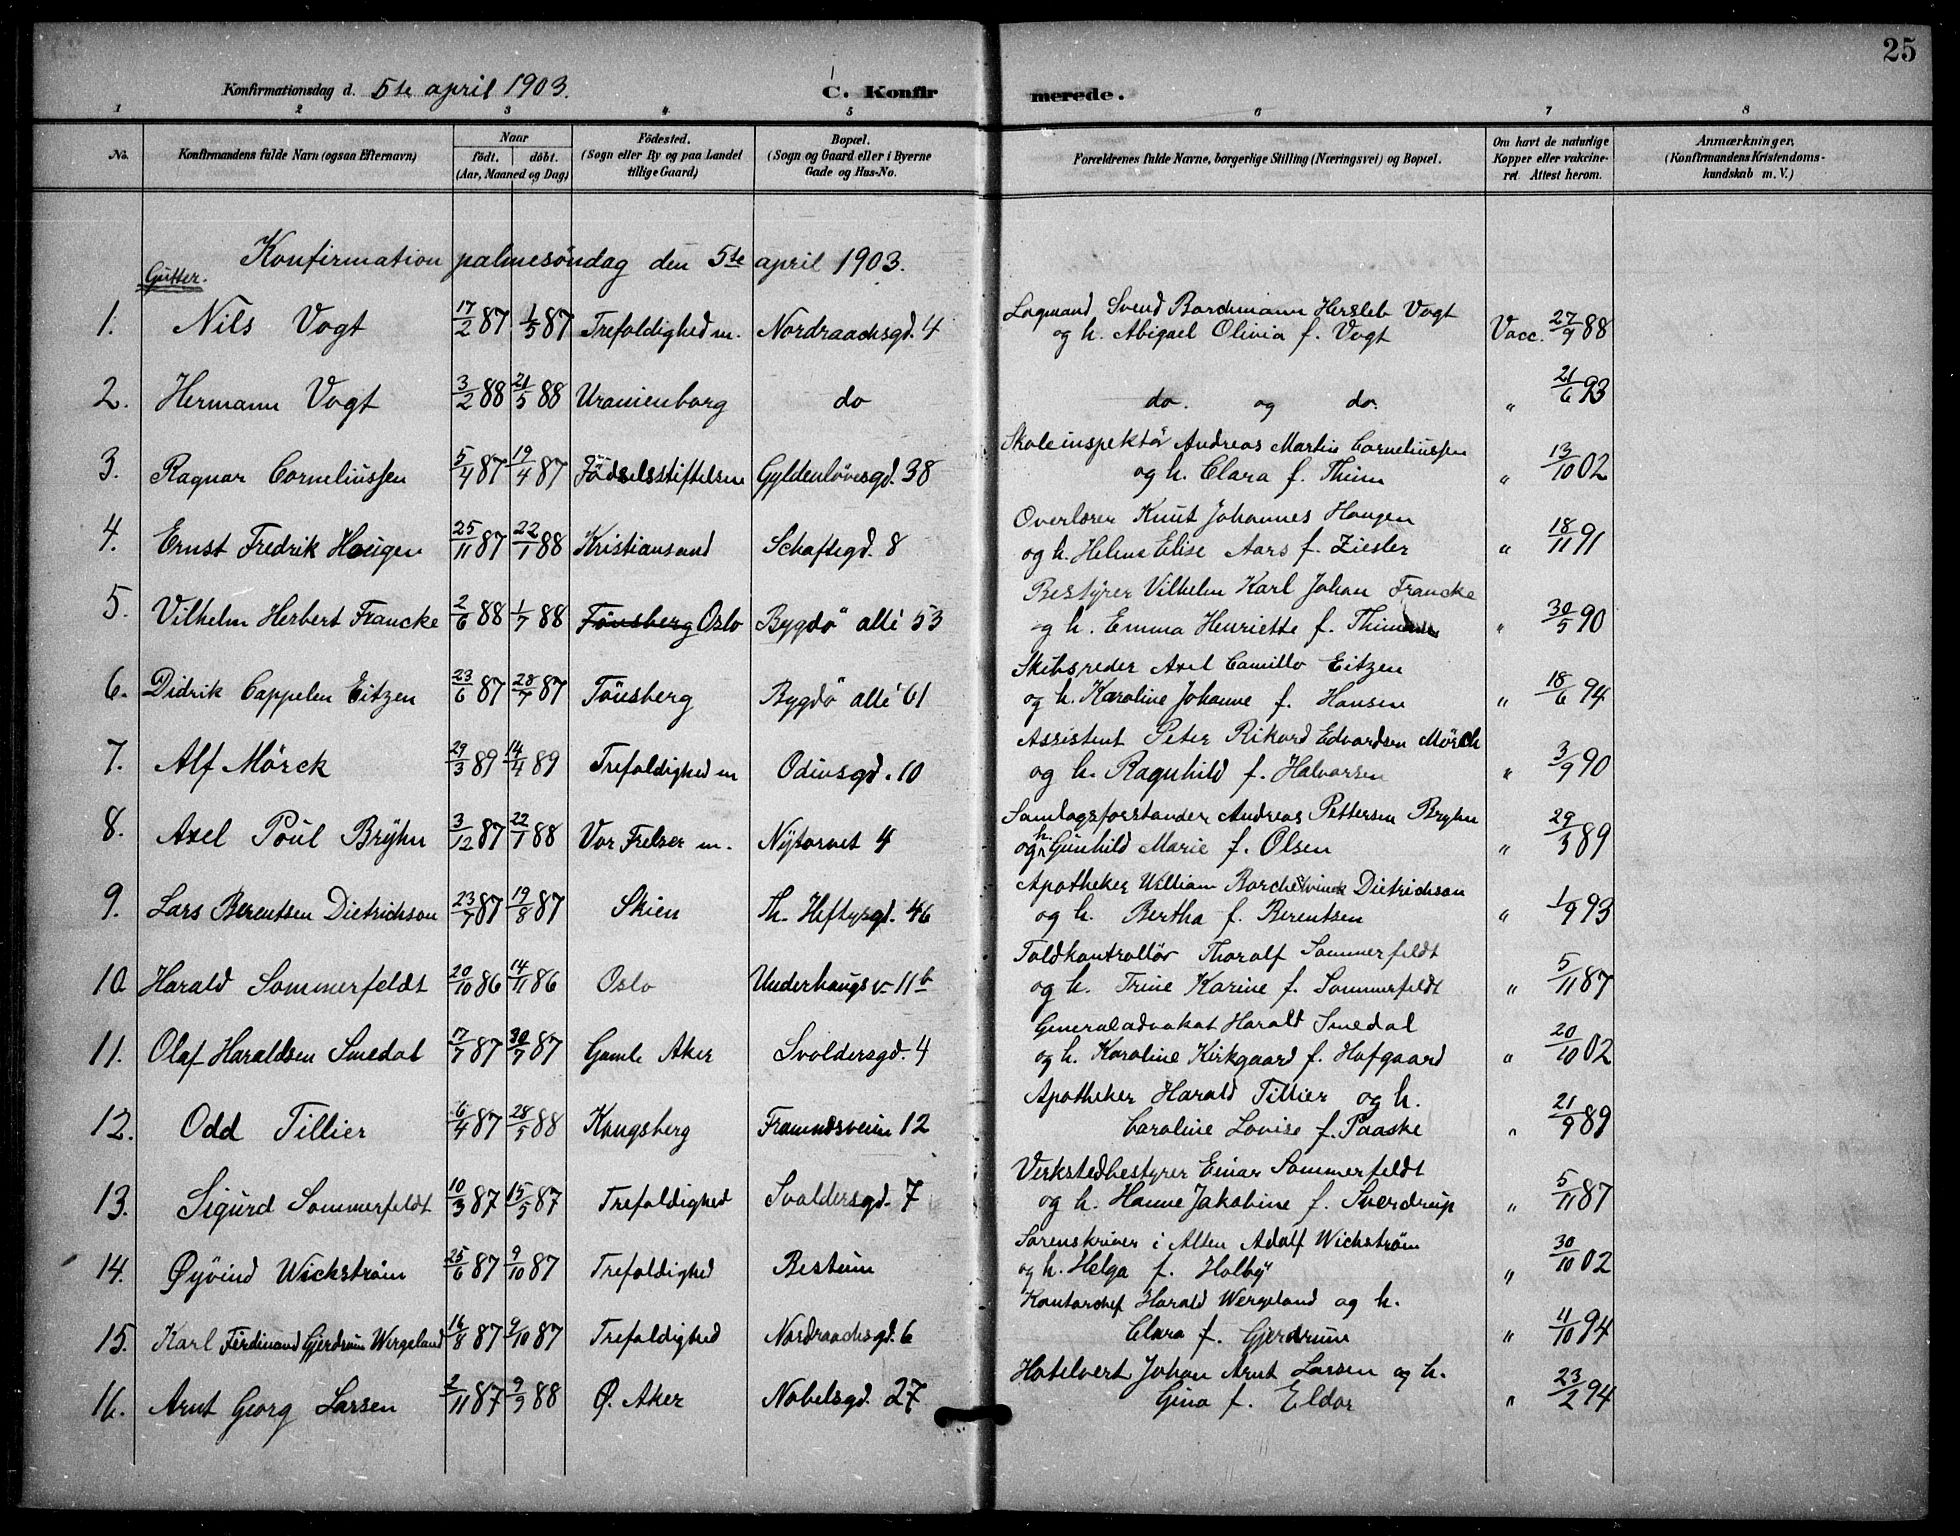 25
Konfirmationsdag d. 5te april 1903.
C. Konfir
merede.
1 2 3 4 5 6 7 8
No. Konfirmandens fulde Navn (ogsaa Efternavn) Naar født. døbt. (Aar, Maaned og Dag) Fødested. (Sogn eller By og paa Landet tillige Gaard) Bopæl. (Sogn og Gaard eller i Byerne Gade og Hus-No. Forældrenes fulde Navne, borgerlige Stilling (Næringsvei) og Bopæl. Om havt de naturlige Kopper eller vakcineret. Attest herom. Anmærkninger, (Konfirmandens Kristendomskundskab m. V.)
Konfirmation palmesöndag den 5te april 1903.
Gutter.
Lagmand Svend Borchmann Hersleb Vogt
1. Nils Vogt 17/2 87 1/5 87 Trefoldighed m. Nordraachsgd. 4 og h. Abigael Olivia f. Vogt Vacc. 27/9 88
2. Hermann Vogt 3/2 88 21/5 88 Uranienborg do do. og do. " 21/6 93
Skoleinspektör Andreas Martin Corneliussen
3. Ragnar Corneliussen 5/4 87 19/4 87 Födselsstiftelsen Gyldenlövesgd. 38 og h. Clara f. Thim " 13/10 02
Overlærer Knut Johannes Hougen
4. Ernst Fredrik Hougen 25/11 87 22/1 88 Kristiansand Schaftsgd. 8 og h. Helene Elise Aars f. Ziesler " 18/11 91
Bestyrer Vilhelm Karl Johan Francke
5. Vilhelm Herbert Francke 2/6 88 1/7 88 Tönsberg Oslo Bygdö allé 53 og h. Emma Henriette f. " 30/5 90
Skibsreder Axel Camillo Eitzen
6. Didrik Cappelen Eitzen 23/6 87 28/7 87 Tönsberg Bygdö allé 61 og h. Karoline Johanne f. Hansen " 18/6 94
Assistent Peter Rikard Edvardsen Mörch
7. Alf Mörck 29/3 89 14/4 89 Trefoldighed m Odinsgd. 10 og h. Ragnhild f. Halvorsen " 3/9 90
Samlagsforstander Andreas Pettersen Bryhn
8. Axel Poul Bryhn 3/12 87 22/1 88 Vor Frelser m. Nytorvet 4 og h. Gunhild Marie f. Olsen " 29/3 89
Apotheker William Borchsenius Dietrichson
9. Lars Berentsen Dietrichson 23/7 87 19/8 87 Skien Th. Heftysgd. 46 og h. Bertha f. Berentsen " 1/9 93
Toldkontrollör Thoralf Sommerfeldt
10. Harald Sommerfeldt 20/10 86 14/11 86 Oslo Underhaugsv 11b og h. Trine Karine f. Sommerfeldt " 5/11 87
Generaladvokat Harald Smedal
11. Olaf Haraldsen Smedal 17/7 87 30/7 87 Gamle Aker Svoldersgd. 4 og h. Karoline Kirkgaard f. Hofgaard " 20/10 02
Apotheker Harald Tillier og h.
12. Odd Tillier 6/4 87 28/5 88 Kongsberg Framnesveien 12 Caroline Lovise f. Paaske " 21/9 89
Verkstedbestyrer Einar Sommerfeldt
13. Sigurd Sommerfeldt 10/3 87 15/5 87 Trefoldighed Svoldersgd. 7 og h. Hanne Jakobine f. Sverdrup " 5/11 87
Sorenskriver i Alten Adolf Wickström
14. Øyvind Wickström 25/6 87 9/10 87 Trefoldighed Bestum og h. Helga f. Holby " 30/10 02
Kontorchef Harald Wergeland og h.
15. Karl Ferdinand Gjerdrum Wergeland 16/8 87 9/10 87 Trefoldighed Nordraachsgd. 6 Clara f. Gjerdrum " 11/10 94
Hotelvert Johan Arnt Larsen og h.
16. Arnt Georg Larsen 2/11 87 9/9 88 Ø. Aker Nobelsgd. 27 Gina f. Eldor " 23/2 94